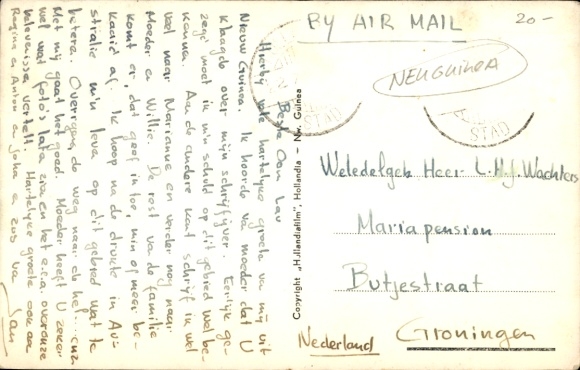 BY AIR MAIL
20-
NEU GUINEA
STAD
STAD
Beste Oom Lou
Hierby vele hartelyke groeten van my uit
Nieuw Guinea. Ik hoorde van moeder dat U
klaagde over mijn schrijfyver. Eerlijk ge-
zegd moet ik m'n schuld op dit gebied wel be-
kennen. Aan de andere kant schrijf ik wel
veel naar Marianne en verder nog naar
Moeder en Willie. De rest van de familie
komt er, dat geef ik toe, min of meer be-
kaaid af. Ik hoop na de druote in Au-
stralie m'n leven op dit gebied wat te
beteren. Overigens de weg naar de hel... enz.
Met mij gaat het goed. Moeder heeft U zeker
wel wat foto's laten zien en het e.e.a. over onze
belevenissen verteld. Hartelijke groeten ook aan
en Anton en Joha en zus van
Jan
Copyright „Hollandiafilm", Hollandia - Nw. Guinea
Weledelgeb Heer L.H.J. Wachters
Maria pension
Butjestraat
Groningen
Nederland